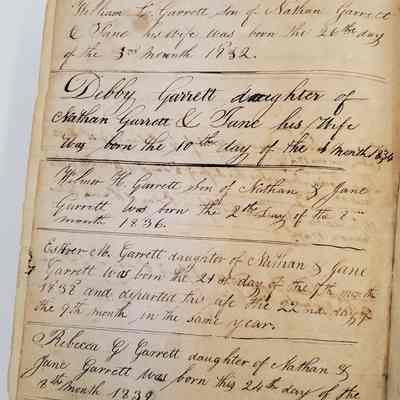 William G Garrett Son of Nathan Garrett
& Jane his wife was born the 26th day
of the 3rd month 1832.
Debby Garrett daughter of
Nathan Garrett & Jane his Wife
Was born the 10th day of the month 1834
Wilmer H. Garrett Son of Nathan & Jane
Garrett Was born the 2nd day of the
month 1836.
Esther M. Garrett daughter of Nathan & Jane
Garrett was born the 21st day of the 7th month
1838 and departed this life the 22nd day of
the 9th month in the same year.
Rebecca G Garrett daughter of Nathan &
Jane Garrett was born this 24th day of the
8th month 1839